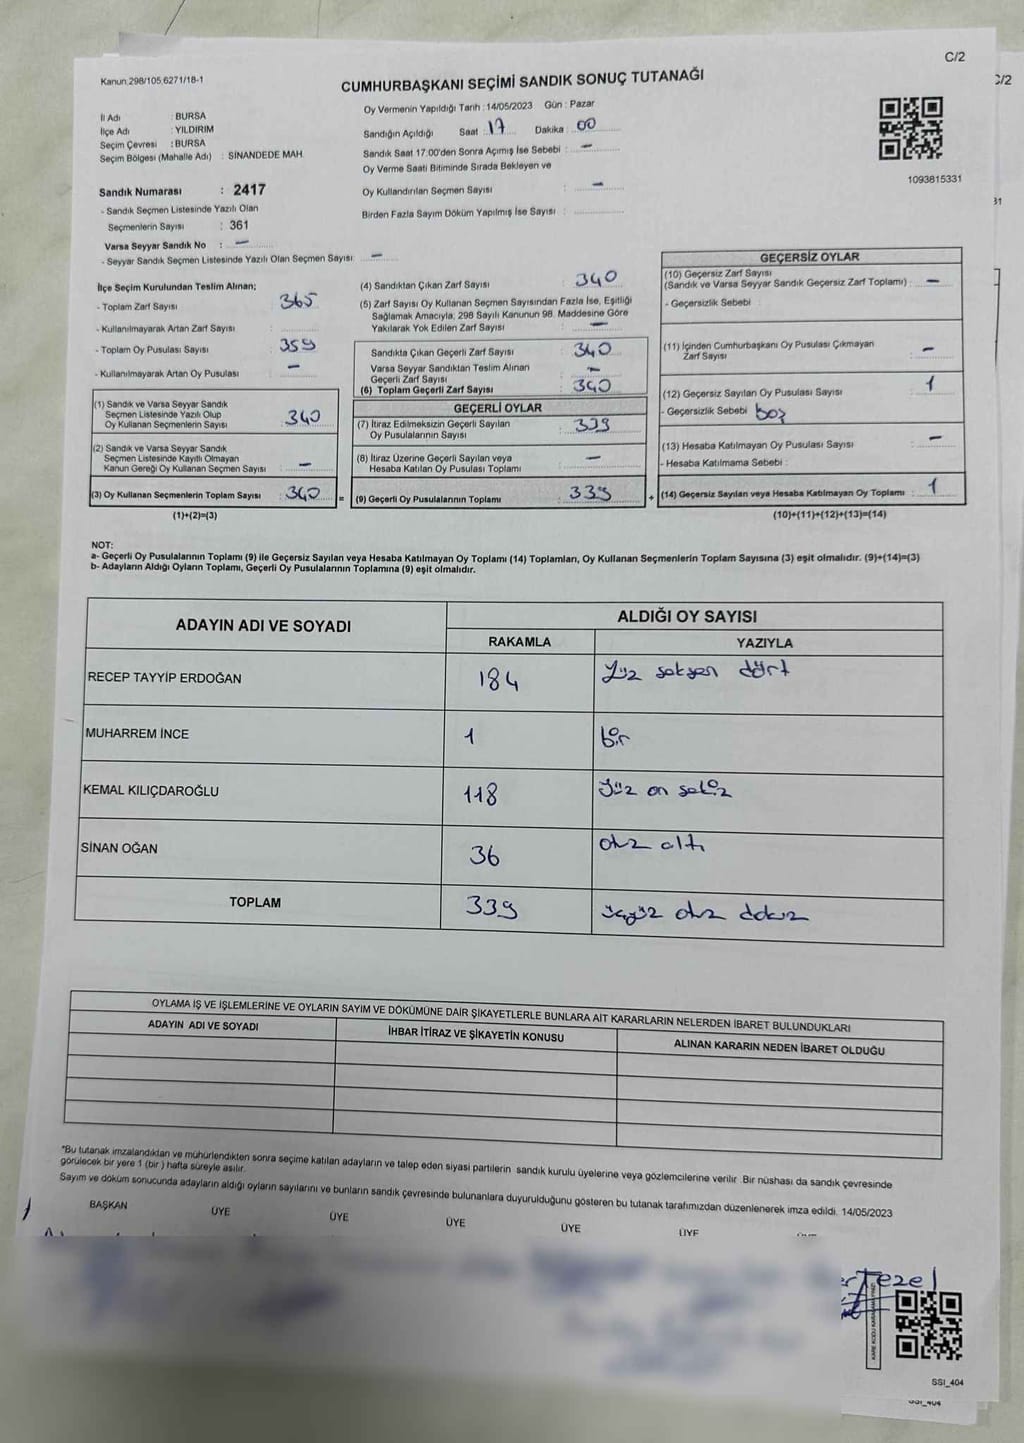 C/2
Kanun 298/105,6271/18-1
CUMHURBAŞKANI SEÇİMİ SANDIK SONUÇ TUTANAĞI
Oy Vermenin Yapıldığı Tarih :14/05/2023 Gün : Pazar
İl Adı : BURSA
İlçe Adı : YILDIRIM
Seçim Çevresi : BURSA
Seçim Bölgesi (Mahalle Adı) : SİNANDEDE MAH.
Sandığın Açıldığı Saat : 17 Dakika : 00
Sandık Saat 17.00'den Sonra Açımış İse Sebebi : –
Oy Verme Saati Bitiminde Sırada Bekleyen ve
Oy Kullandırılan Seçmen Sayısı : –
Birden Fazla Sayım Döküm Yapılmış İse Sayısı :
1093815331
Sandık Numarası : 2417
- Sandık Seçmen Listesinde Yazılı Olan
Seçmenlerin Sayısı : 361
Varsa Seyyar Sandık No : –
- Seyyar Sandık Seçmen Listesinde Yazılı Olan Seçmen Sayısı : –
İlçe Seçim Kurulundan Teslim Alınan;
- Toplam Zarf Sayısı : 365
- Kullanılmayarak Artan Zarf Sayısı :
- Toplam Oy Pusulası Sayısı : 359
- Kullanılmayarak Artan Oy Pusulası : –
(1) Sandık ve Varsa Seyyar Sandık
Seçmen Listesinde Yazılı Olup
Oy Kullanan Seçmenlerin Sayısı : 340
(2) Sandık ve Varsa Seyyar Sandık
Seçmen Listesinde Kayıtlı Olmayan
Kanun Gereği Oy Kullanan Seçmen Sayısı : –
(3) Oy Kullanan Seçmenlerin Toplam Sayısı : 340
(1)+(2)=(3)
(4) Sandıktan Çıkan Zarf Sayısı : 340
(5) Zarf Sayısı Oy Kullanan Seçmen Sayısından Fazla İse, Eşitliği
Sağlamak Amacıyla, 298 Sayılı Kanunun 98. Maddesine Göre
Yakılarak Yok Edilen Zarf Sayısı : –
Sandıkta Çıkan Geçerli Zarf Sayısı : 340
Varsa Seyyar Sandıktan Teslim Alınan
Geçerli Zarf Sayısı : –
(6) Toplam Geçerli Zarf Sayısı : 340
GEÇERLİ OYLAR
(7) İtiraz Edilmeksizin Geçerli Sayılan
Oy Pusulalarının Sayısı : 339
(8) İtiraz Üzerine Geçerli Sayılan veya
Hesaba Katılan Oy Pusulası Toplamı : –
= (9) Geçerli Oy Pusulalarının Toplamı : 339 +
GEÇERSİZ OYLAR
(10) Geçersiz Zarf Sayısı
(Sandık ve Varsa Seyyar Sandık Geçersiz Zarf Toplamı) : –
- Geçersizlik Sebebi :
(11) İçinden Cumhurbaşkanı Oy Pusulası Çıkmayan
Zarf Sayısı : –
(12) Geçersiz Sayılan Oy Pusulası Sayısı : 1
- Geçersizlik Sebebi : boş
(13) Hesaba Katılmayan Oy Pusulası Sayısı : –
- Hesaba Katılmama Sebebi :
(14) Geçersiz Sayılan veya Hesaba Katılmayan Oy Toplamı : 1
(10)+(11)+(12)+(13)=(14)
NOT:
a- Geçerli Oy Pusulalarının Toplamı (9) ile Geçersiz Sayılan veya Hesaba Katılmayan Oy Toplamı (14) Toplamları, Oy Kullanan Seçmenlerin Toplam Sayısına (3) eşit olmalıdır. (9)+(14)=(3)
b- Adayların Aldığı Oyların Toplamı, Geçerli Oy Pusulalarının Toplamına (9) eşit olmalıdır.
ADAYIN ADI VE SOYADI
ALDIĞI OY SAYISI
RAKAMLA YAZIYLA
RECEP TAYYİP ERDOĞAN 184 Yüz seksen dört
MUHARREM İNCE 1 bir
KEMAL KILIÇDAROĞLU 118 Yüz on sekiz
SİNAN OĞAN 36 otuz altı
TOPLAM 339 üçyüz otuz dokuz
OYLAMA İŞ VE İŞLEMLERİNE VE OYLARIN SAYIM VE DÖKÜMÜNE DAİR ŞİKAYETLERLE BUNLARA AİT KARARLARIN NELERDEN İBARET BULUNDUKLARI
ADAYIN ADI VE SOYADI İHBAR İTİRAZ VE ŞİKAYETİN KONUSU ALINAN KARARIN NEDEN İBARET OLDUĞU
*Bu tutanak imzalandıktan ve mühürlendikten sonra seçime katılan adayların ve talep eden siyasi partilerin sandık kurulu üyelerine veya gözlemcilerine verilir. Bir nüshası da sandık çevresinde
görülecek bir yere 1 (bir) hafta süreyle asılır.
Sayım ve döküm sonucunda adayların aldığı oyların sayılarını ve bunların sandık çevresinde bulunanlara duyurulduğunu gösteren bu tutanak tarafımızdan düzenlenerek imza edildi. 14/05/2023
BAŞKAN ÜYE ÜYE ÜYE ÜYE ÜYE
Tezel
SSI_404
SSI_404